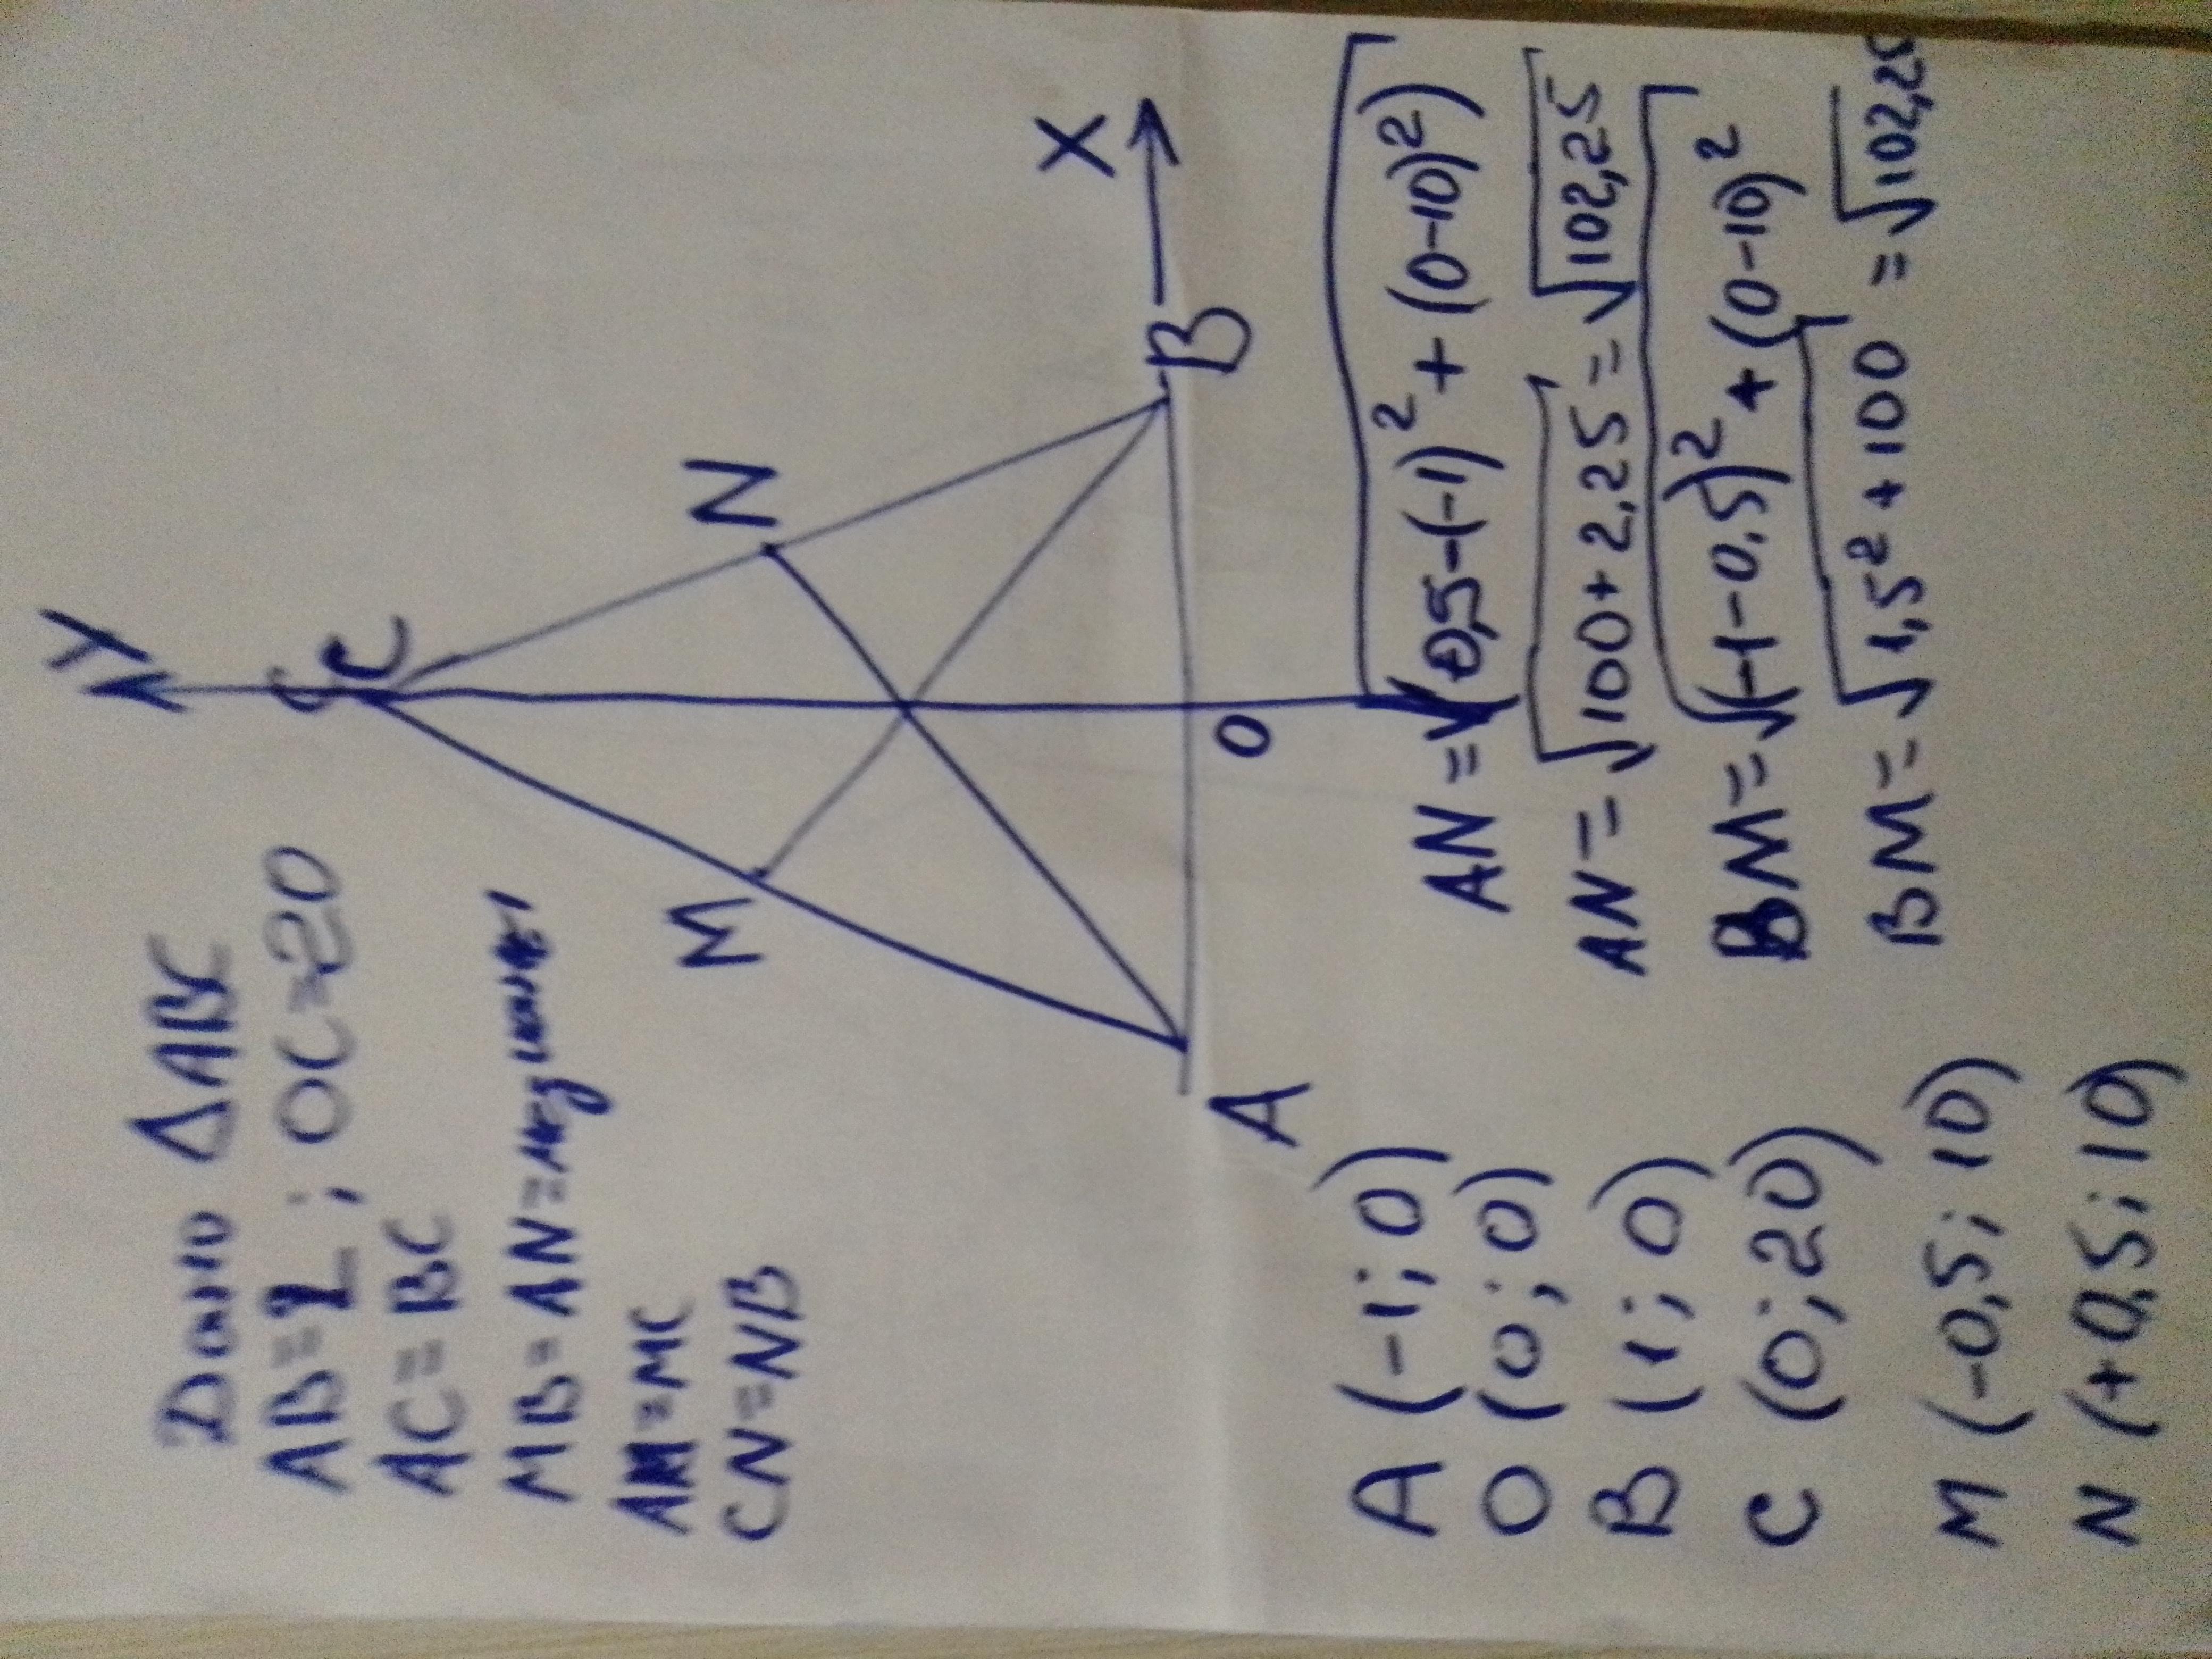 Дано ΔABC
AB=2; OC=20
AC=BC
MB=AN=медианы
AM=MC
CN=NB
Y
C
M
N
X
A
O
B
A (-1; 0)
O (0; 0)
B (1; 0)
C (0; 20)
M (-0,5; 10)
N (+0,5; 10)
AN=√(0,5-(-1)² + (0-10)²)
AN=√100+2,25 = √102,25
BM=√(-1-0,5)² + (0-10)²
BM=√1,5² + 100 = √102,25